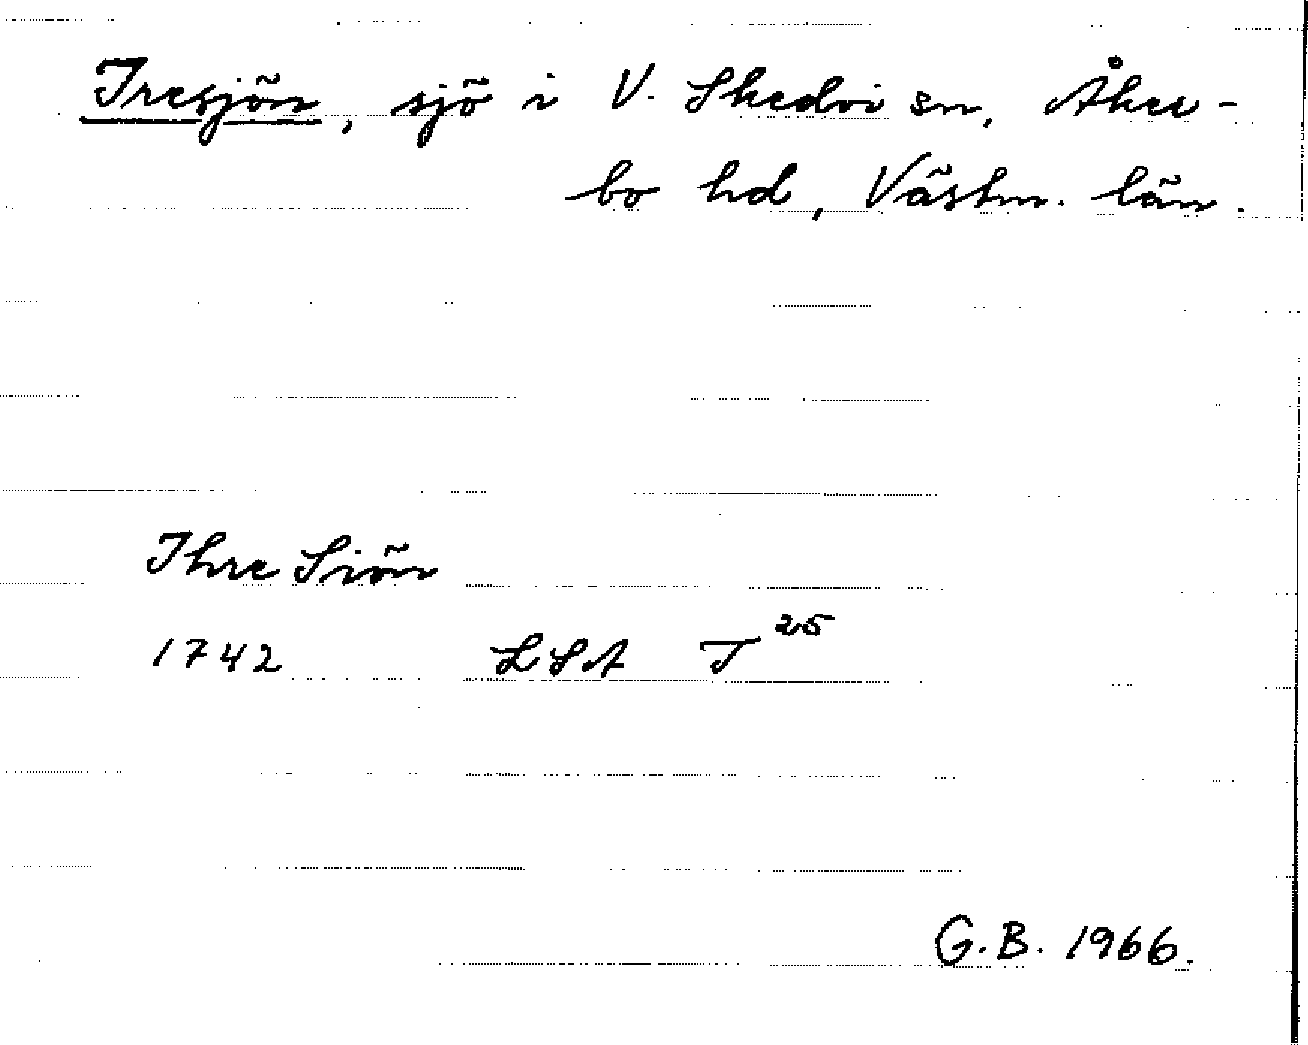 Iresjön, sjö i V. Skedvi sn, Åker-
bo hd, Västm. län.
Ihre Siön
1742 LSA T 25
G.B. 1966.